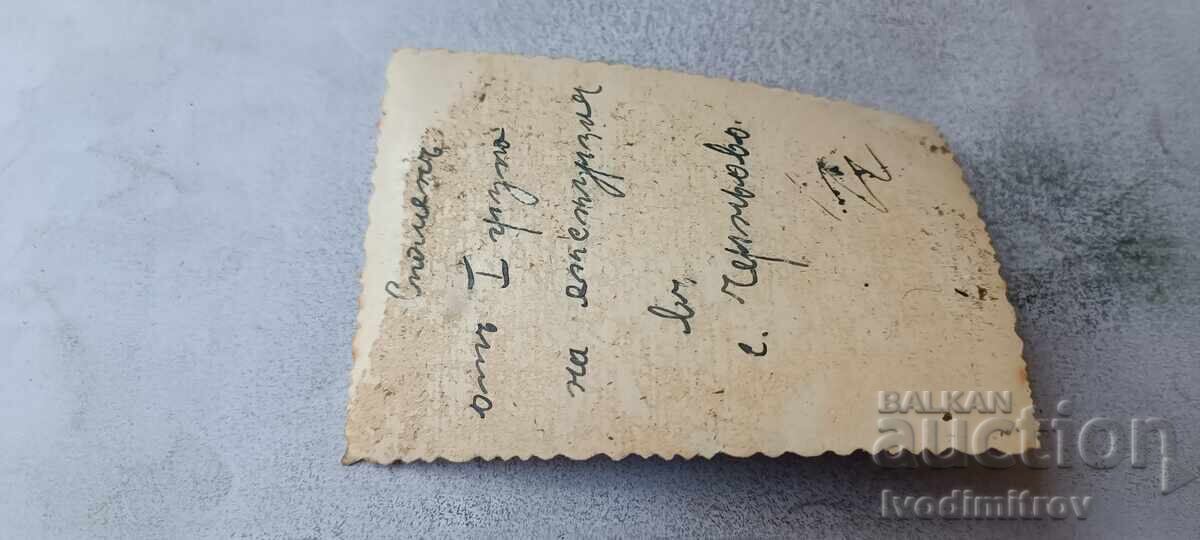 Споменъ
отъ I група
на екскурзия
въ
с. Черньово.
BALKAN
auction
Ivodimitrov